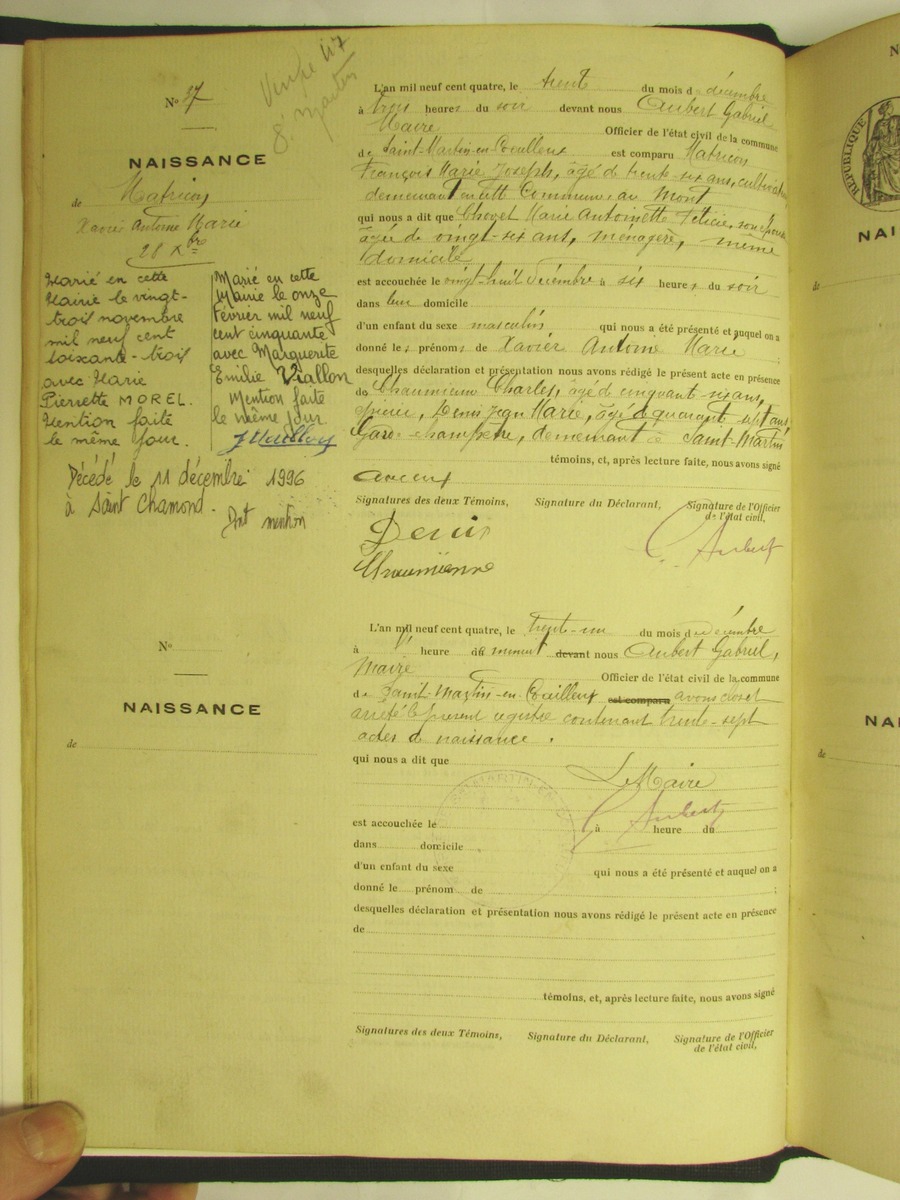 N° 37
NAISSANCE
de Matricon
Xavier Antoine Marie
28 Xbre
Marié en cette
Mairie le vingt-
trois novembre
mil neuf cent
soixante-trois
avec Marie
Pierrette MOREL.
Mention faite
le même jour.
Marié en cette
Mairie le onze
Février mil neuf
cent cinquante
avec Marguerite
Emilie Viallon
Mention faite
le même jour
Décédé le 11 décembre 1996
à Saint Chamond.
Dont mention
L'an mil neuf cent quatre, le trente du mois de décembre
à trois heures du soir devant nous Aubert Gabriel
Maire Officier de l'état civil de la commune
de Saint-Martin-en-Coailleux est comparu Matricon
François Marie Joseph, âgé de trente-six ans, cultivateur
demeurant en cette Commune, au Mont
qui nous a dit que Chovet Marie Antoinette Leticie, son épouse
âgée de vingt-six ans, ménagère, même
domicile
est accouchée le vingt-huit Décembre à six heures du soir
dans leur domicile
d'un enfant du sexe masculin qui nous a été présenté et auquel on a
donné les prénoms de Xavier Antoine Marie ;
desquelles déclaration et présentation nous avons rédigé le présent acte en présence
de Chaumienne Charles, âgé de cinquant-six ans,
Denis Jean Marie, âgé de quarante-sept ans
Garde-champêtre, demeurant à Saint-Martin
témoins, et, après lecture faite, nous avons signé
Signatures des deux Témoins, Signature du Déclarant, Signature de l'Officier
de l'état civil,
Denis
Chaumienne
G. Aubert
N°
NAISSANCE
de
L'an mil neuf cent quatre, le trente-un du mois de décembre
à heure de minuit devant nous Aubert Gabriel,
Maire Officier de l'état civil de la commune
de Saint-Martin-en-Coailleux est comparu avons clos et
arrêté le présent registre contenant trente-sept
actes de naissance.
qui nous a dit que
Le Maire
G. Aubert
est accouchée le à heure du
dans domicile
d'un enfant du sexe qui nous a été présenté et auquel on a
donné le prénom de ;
desquelles déclaration et présentation nous avons rédigé le présent acte en présence
de
témoins, et, après lecture faite, nous avons signé
Signatures des deux Témoins, Signature du Déclarant, Signature de l'Officier
de l'état civil,
N°
RÉPUBLIQUE
NAI
de
NA
de